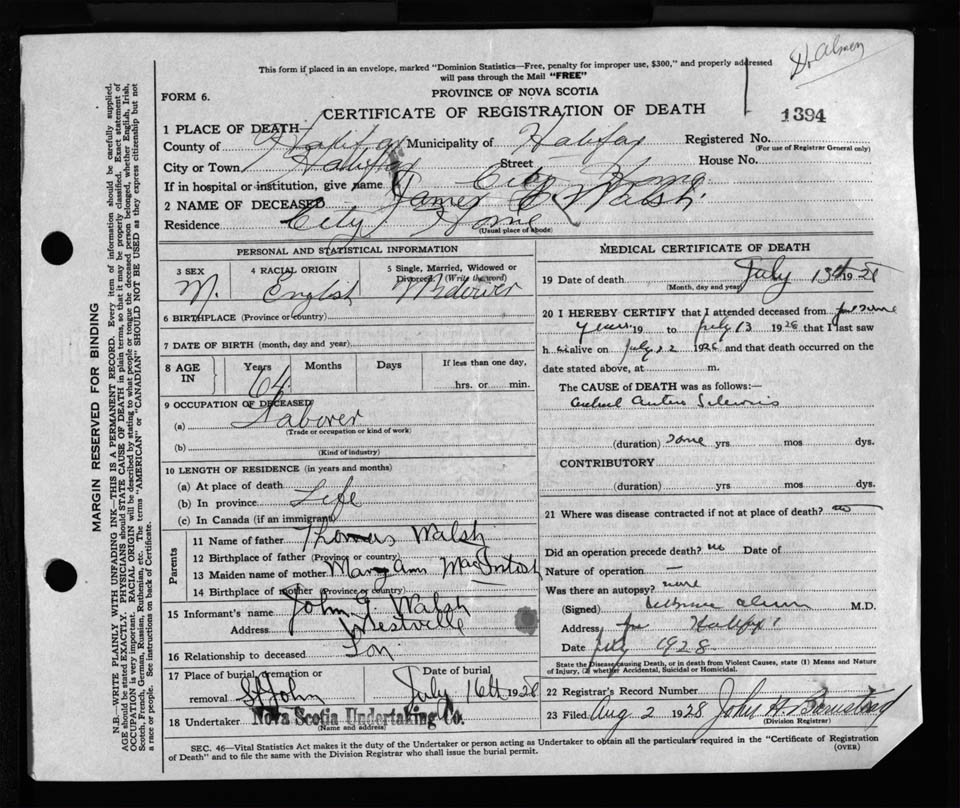 This form if placed in an envelope, marked "Dominion Statistics—Free, penalty for improper use, $300," and properly addressed
will pass through the Mail "FREE"
PROVINCE OF NOVA SCOTIA
FORM 6.
CERTIFICATE OF REGISTRATION OF DEATH
1394
1 PLACE OF DEATH—
County of Halifax Municipality of Halifax Registered No.
(For use of Registrar General only)
City or Town Halifax Street House No.
If in hospital or institution, give name City Home
2 NAME OF DECEASED James Walsh
Residence City Home
(Usual place of abode)
PERSONAL AND STATISTICAL INFORMATION
3 SEX 4 RACIAL ORIGIN 5 Single, Married, Widowed or
Divorced (Write the word)
M. English Widower
6 BIRTHPLACE (Province or country)
7 DATE OF BIRTH (month, day and year)
8 AGE IN Years Months Days If less than one day,
64 hrs. or min.
9 OCCUPATION OF DECEASED
(a) Laborer
(Trade or occupation or kind of work)
(b)
(Kind of industry)
10 LENGTH OF RESIDENCE (in years and months)
(a) At place of death
(b) In province Life
(c) In Canada (if an immigrant)
Parents
11 Name of father Thomas Walsh
12 Birthplace of father (Province or country)
13 Maiden name of mother Mary Ann MacIntosh
14 Birthplace of mother (Province or country)
15 Informant's name John J Walsh
Address Westville
16 Relationship to deceased Son
17 Place of burial, cremation or Date of burial
removal St John July 16th 1928
18 Undertaker Nova Scotia Undertaking Co.
(Name and address)
MEDICAL CERTIFICATE OF DEATH
19 Date of death July 13th 1928
(Month, day and year)
20 I HEREBY CERTIFY that I attended deceased from for some
years 19 to July 13 1928 that I last saw
h alive on July 1928 and that death occurred on the
date stated above, at m.
The CAUSE of DEATH was as follows:—
(duration) some yrs mos dys.
CONTRIBUTORY
(duration) yrs mos dys.
21 Where was disease contracted if not at place of death? no
Did an operation precede death? no Date of
Nature of operation —
Was there an autopsy? none
(Signed) M.D.
Address Halifax
Date July 1928
State the Disease causing Death, or in death from Violent Causes, state (1) Means and Nature
of Injury, (2) whether Accidental, Suicidal or Homicidal.
22 Registrar's Record Number
23 Filed Aug 2 1928 John H.
(Division Registrar)
SEC. 46—Vital Statistics Act makes it the duty of the Undertaker or person acting as Undertaker to obtain all the particulars required in the "Certificate of Registration
of Death" and to file the same with the Division Registrar who shall issue the burial permit.
(OVER)
MARGIN RESERVED FOR BINDING
N.B.—WRITE PLAINLY WITH UNFADING INK—THIS IS A PERMANENT RECORD. Every item of information should be carefully supplied.
AGE should be stated EXACTLY. PHYSICIANS should STATE CAUSE OF DEATH in plain terms, so that it may be properly classified. Exact statement of
OCCUPATION is very important. RACIAL ORIGIN will be described by stating to what people or tongue the deceased person belonged, whether English, Irish,
Scotch, French, German, Russian, Ruthenian, etc. The terms "AMERICAN" or "CANADIAN" SHOULD NOT BE USED as they express citizenship but not
a race or people. See instructions on back of Certificate.